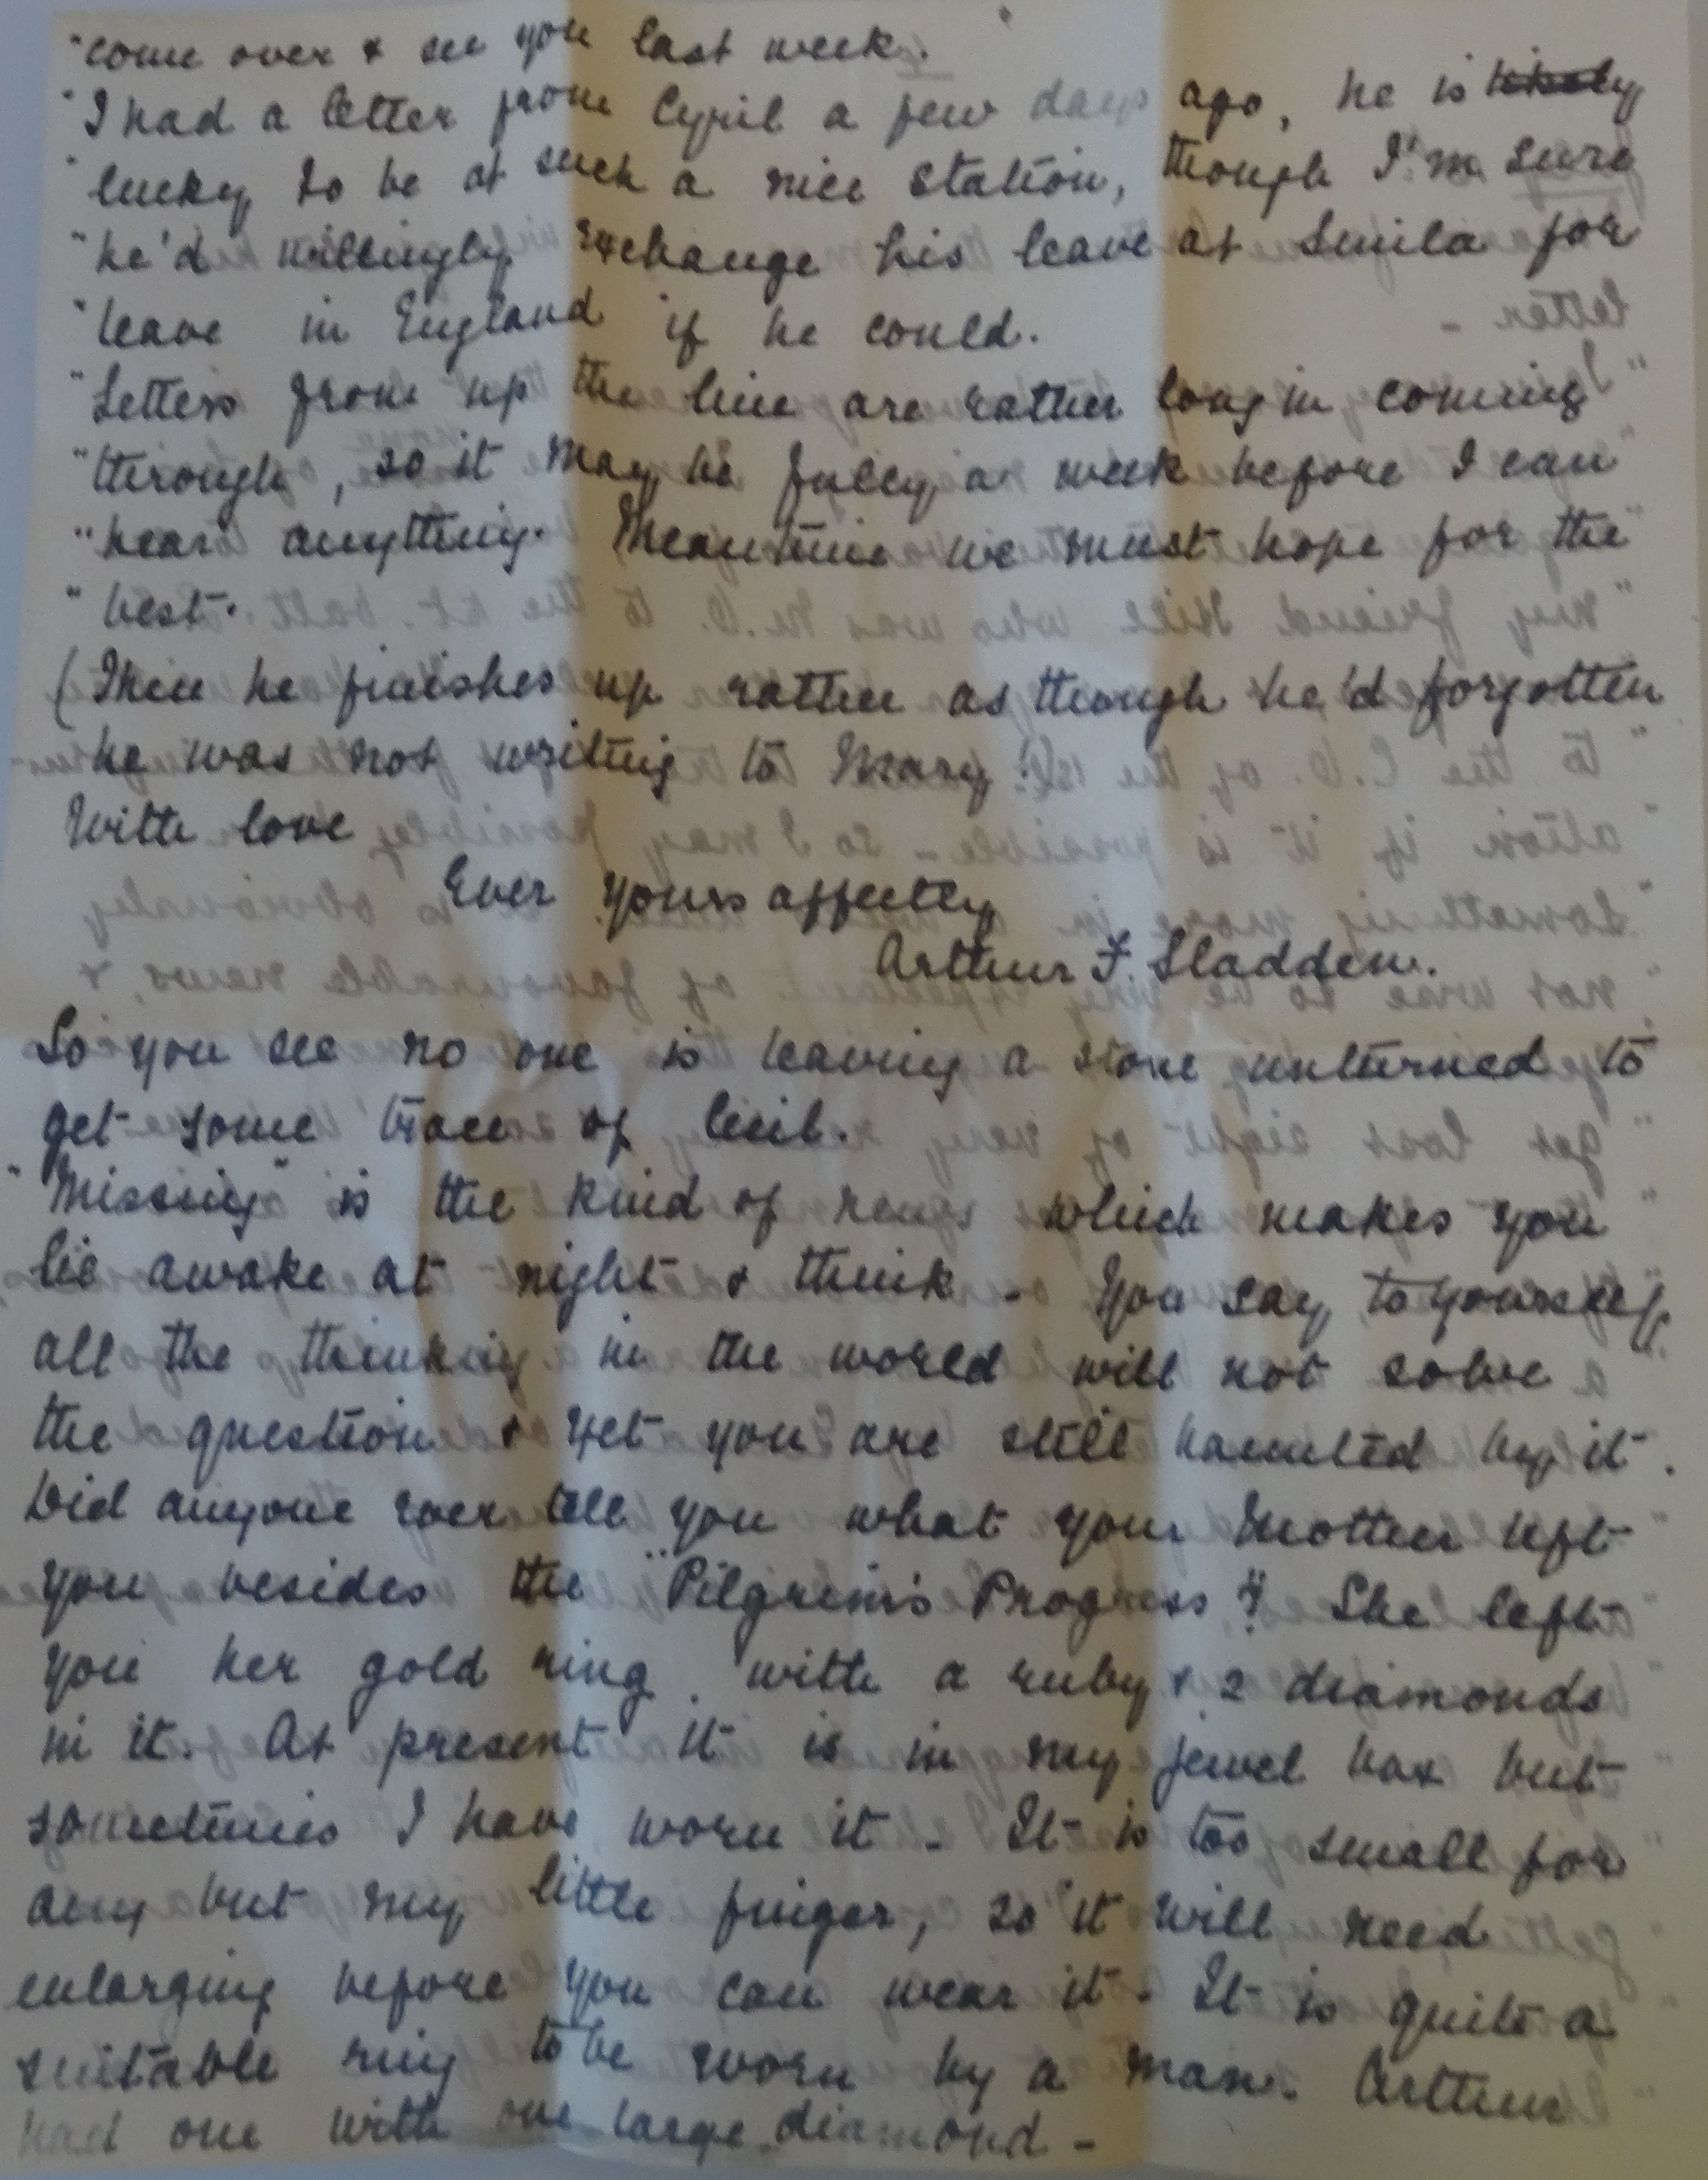 "come over & see you last week.
"I had a letter from Cyril a few days ago, he is likely
"lucky to be at such a nice station, though I'm sure
"he'd willingly exchange his leave at Simla for
"leave in England if he could.
"Letters from up the line are rather long in coming
"through, so it may be fully a week before I can
"hear anything. Meantime we must hope for the
"best.
(Then he finishes up rather as though he'd forgotten
he was not writing to Mary!)
With love
Ever yours affectly
Arthur F. Sladden.
So you see no one is leaving a stone unturned to
get some trace of Cecil.
"Missing" is the kind of news which makes you
lie awake at night & think - You say to yourself
all the thinking in the world will not solve
the question & yet you are still haunted by it.
Did anyone ever tell you what your Mother left
you besides the "Pilgrim's Progress"? She left
you her gold ring with a ruby & 2 diamonds
in it. At present it is in my jewel box but
sometimes I have worn it - It is too small for
any but my little finger, so it will need
enlarging before you can wear it - It is quite a
suitable ring to be worn by a man. Arthur
had one with one large diamond -